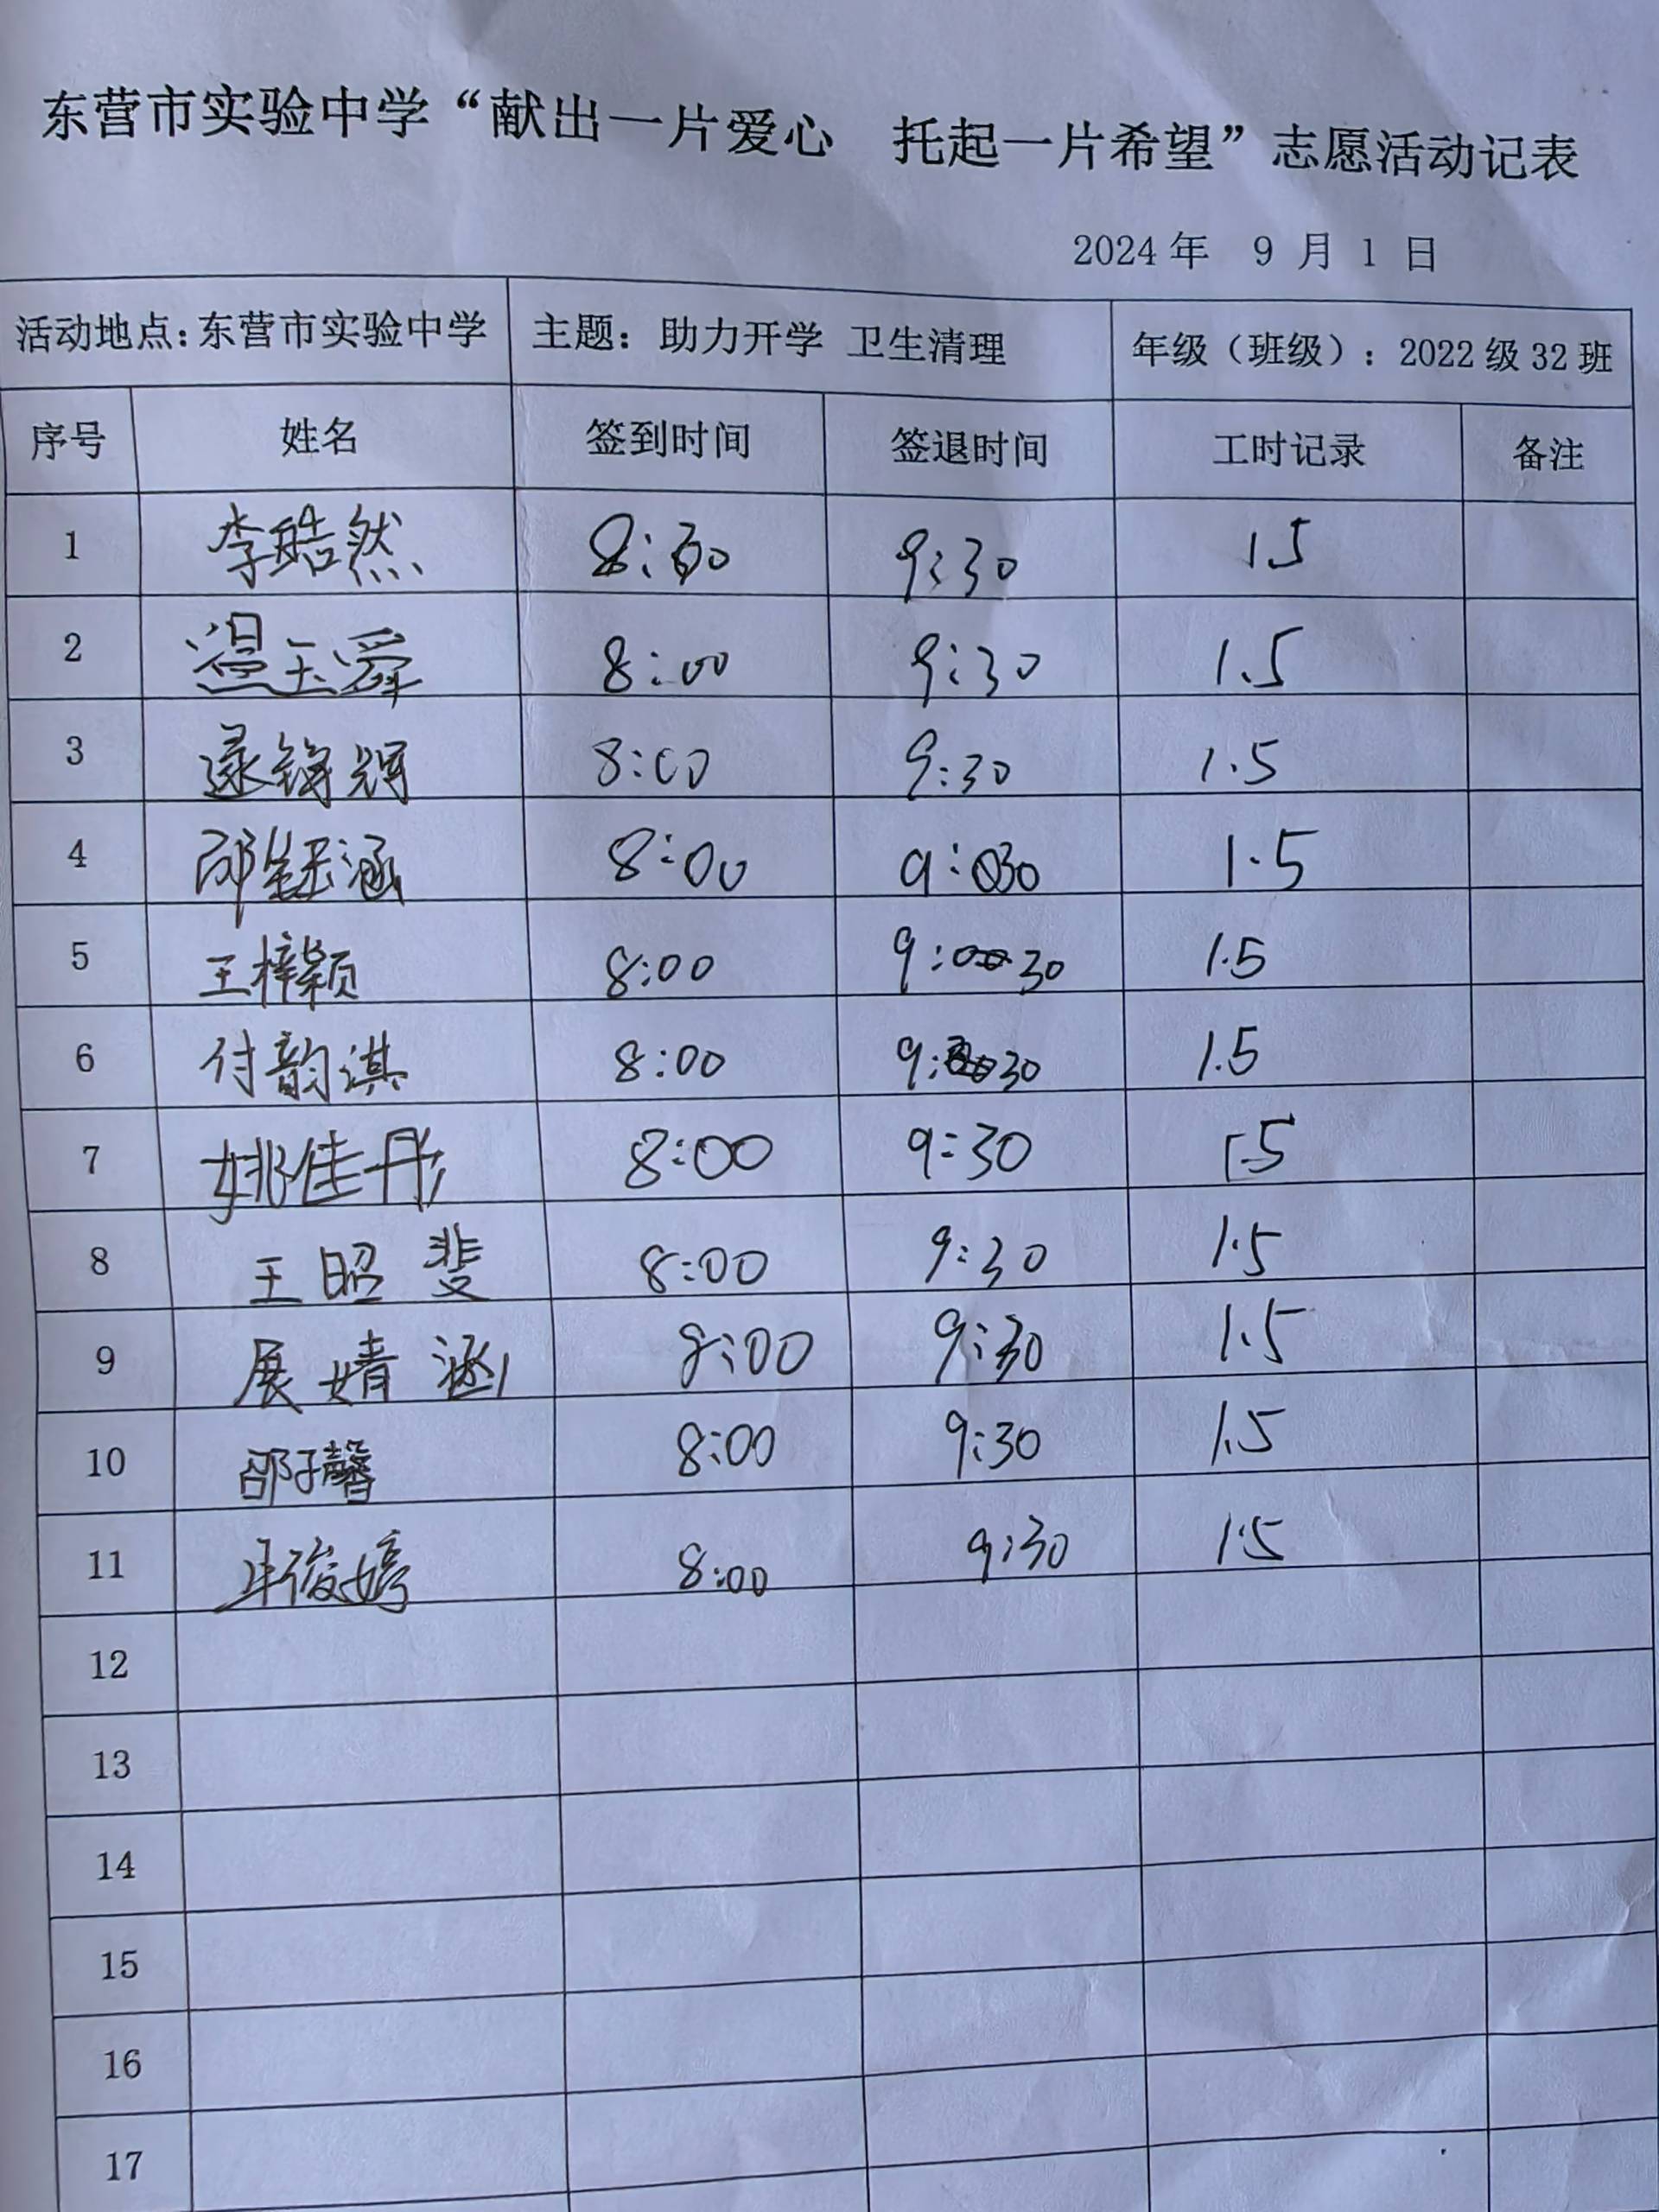 东营市实验中学“献出一片爱心 托起一片希望”志愿活动记表
2024年 9 月 1 日
活动地点：东营市实验中学 主题：助力开学 卫生清理 年级（班级）：2022级32班
序号 姓名 签到时间 签退时间 工时记录 备注
1 李皓然 8:00 9:30 1.5
2 温玉舜 8:00 9:30 1.5
3 逯锦辉 8:00 9:30 1.5
4 8:00 9:30 1.5
5 王梓颖 8:00 9:30 1.5
6 付韵淇 8:00 9:30 1.5
7 姚佳彤 8:00 9:30 1.5
8 王昭斐 8:00 9:30 1.5
9 展婧涵 8:00 9:30 1.5
10 邵子馨 8:00 9:30 1.5
11 8:00 9:30 1.5
12
13
14
15
16
17